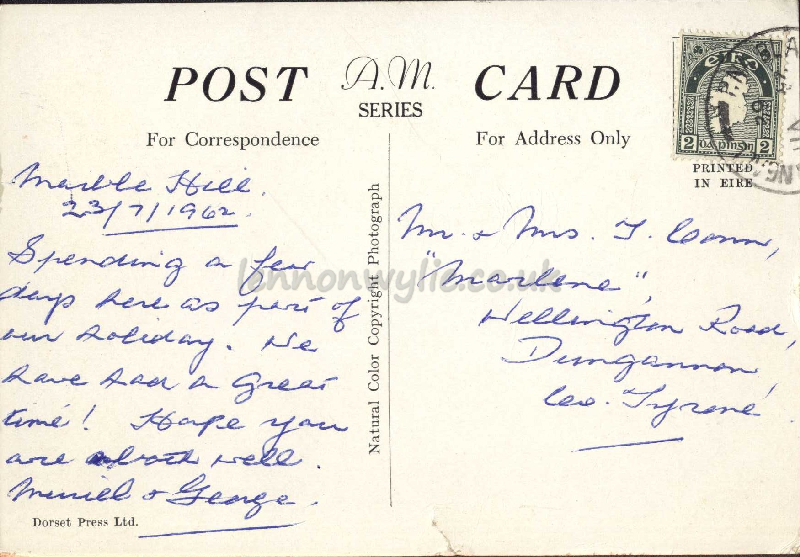 POST A.M. CARD
SERIES
For Correspondence
For Address Only
Marble Hill.
23/7/1962.
Spending a few
days here as part of
our holiday. We
have had a great
time! Hope you
are both well.
Muriel & George.
Dorset Press Ltd.
Natural Color Copyright Photograph
ÉIRE
2 DÁ PINGIN 2
PRINTED
IN EIRE
Mr. & Mrs. T. Conn,
"Marlene",
Wellington Road,
Dungannon,
Co. Tyrone.
lennonwylie.co.uk